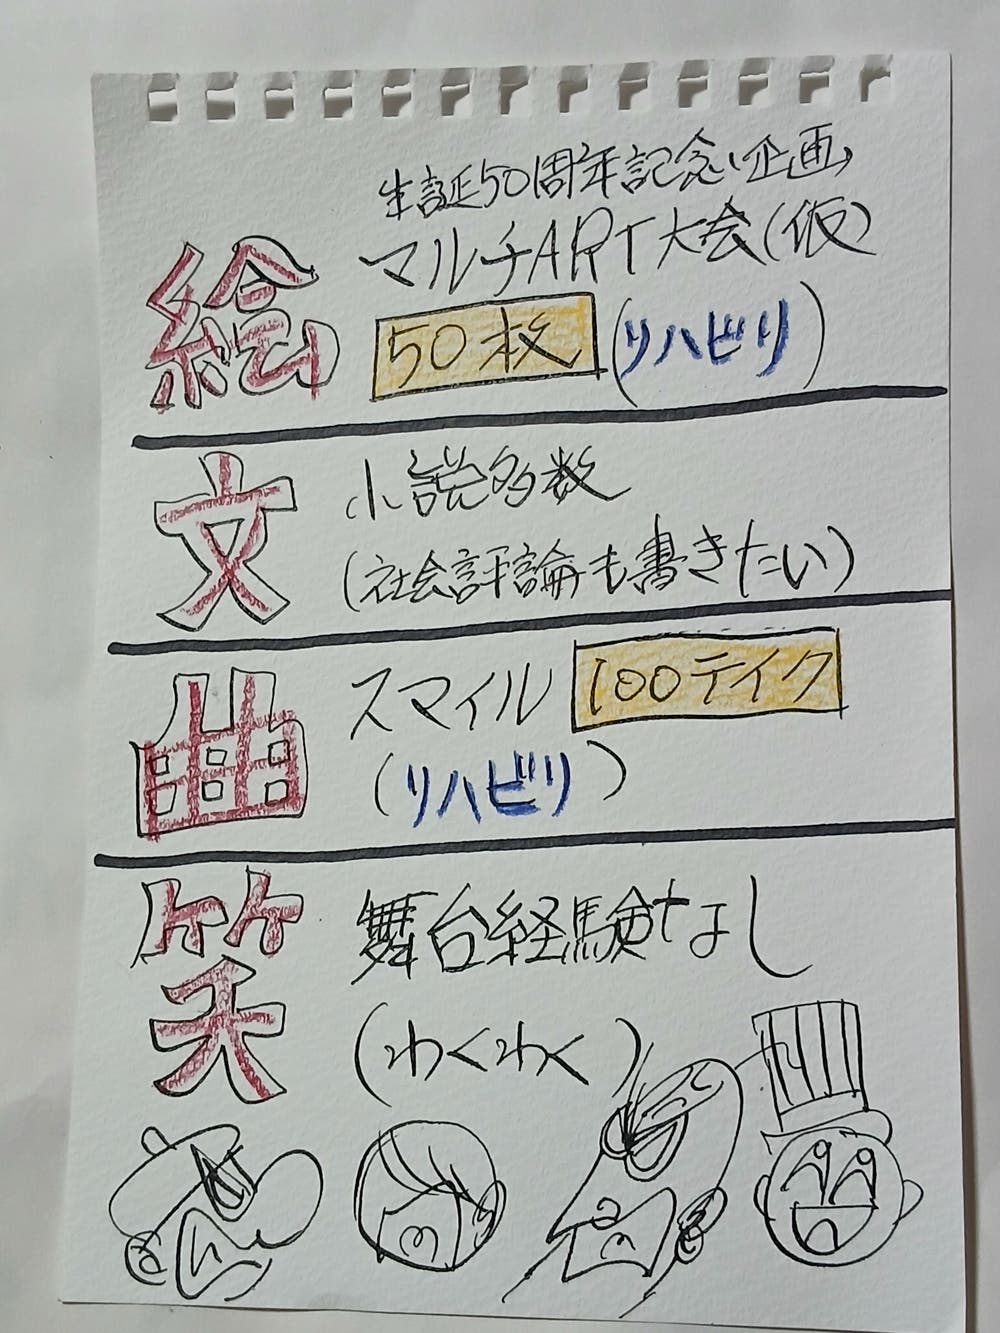 生誕50周年記念企画
マルチART大会(仮)
絵
50枚(リハビリ)
文
小説多数
(社会評論も書きたい)
曲
スマイル 100テイク
(リハビリ)
笑
舞台経験なし
(わくわく)